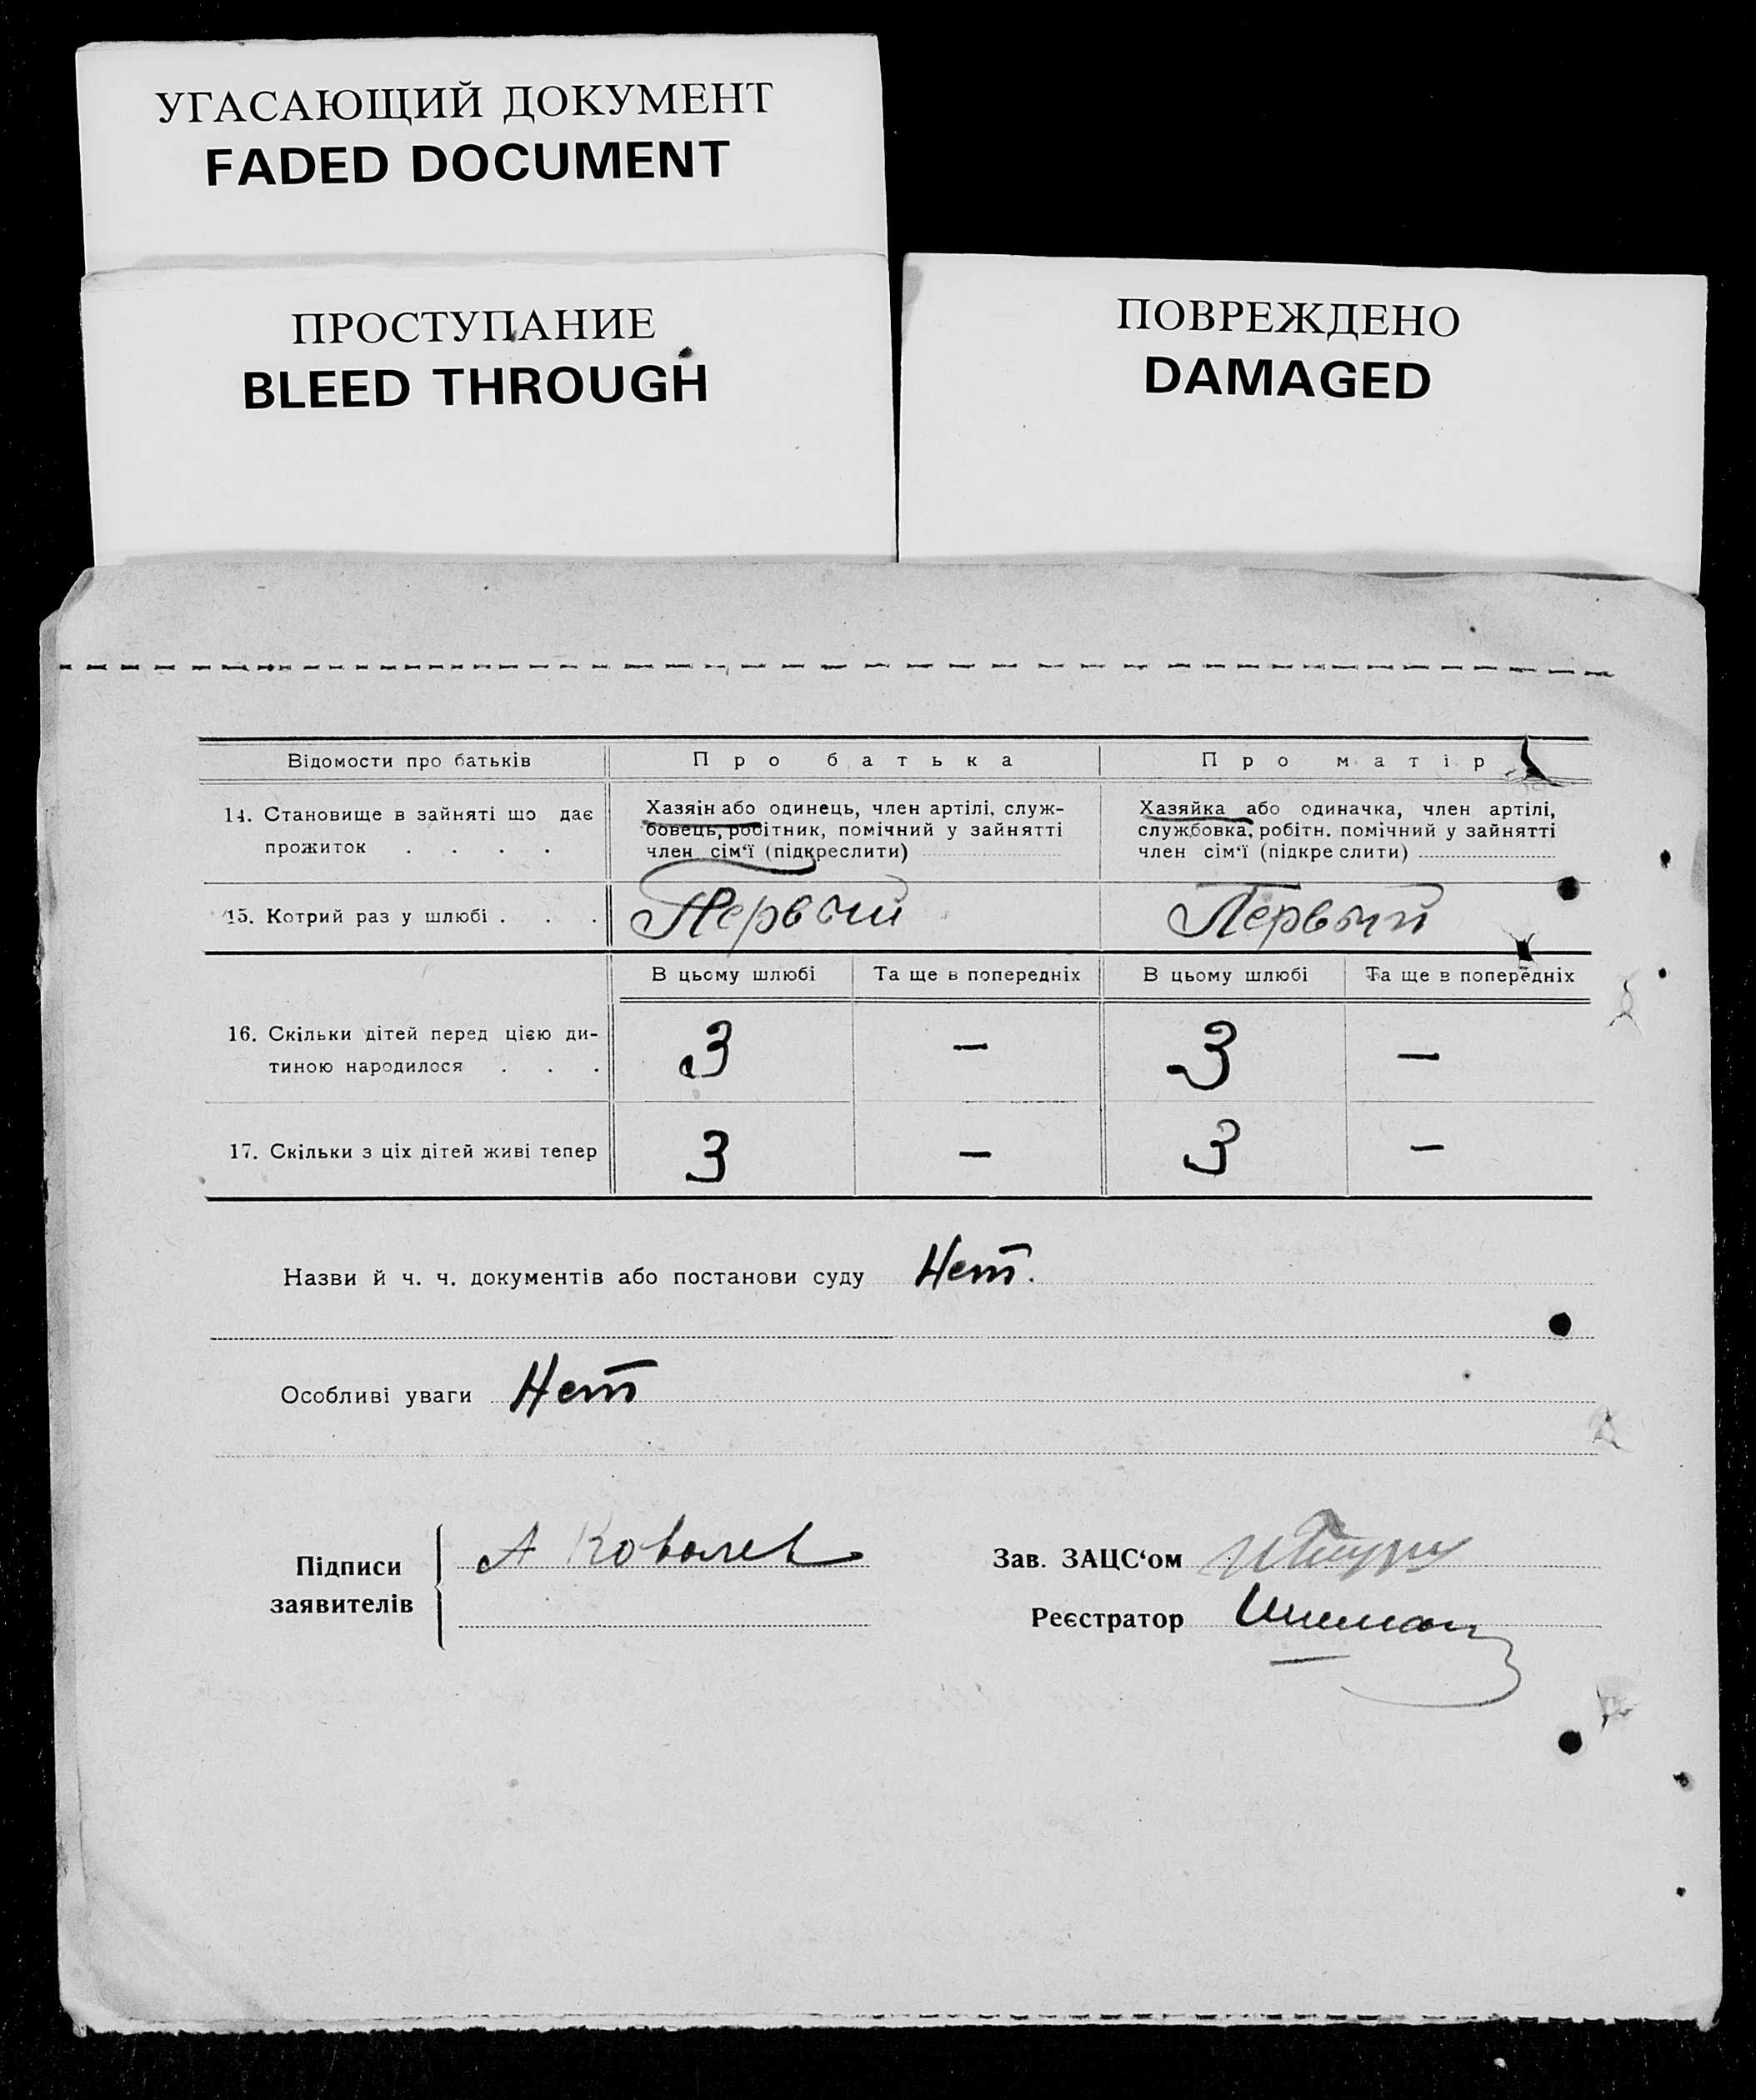 УГАСАЮЩИЙ ДОКУМЕНТ
FADED DOCUMENT
ПРОСТУПАНИЕ
BLEED THROUGH
ПОВРЕЖДЕНО
DAMAGED
Відомости про батьків
Про батька
Про матір
14. Становище в зайняті що дає
прожиток . . . .
Хазяін або одинець, член артілі, служ-
бовець, робітник, помічний у зайнятті
член сім‘ї (підкреслити)
Хазяйка або одиначка, член артілі,
службовка, робітн. помічний у зайнятті
член сім‘ї (підкреслити)
15. Котрий раз у шлюбі . . .
Первый
Первый
В цьому шлюбі
Та ще в попередніх
В цьому шлюбі
Та ще в попередніх
16. Скільки дітей перед цією ди-
тиною народилося . . .
3
—
3
—
17. Скільки з ціх дітей живі тепер
3
—
3
—
Назви й ч. ч. документів або постанови суду Нет.
Особливі уваги Нет
Підписи
заявителів
А Ковалев
Зав. ЗАЦС‘ом
Реєстратор